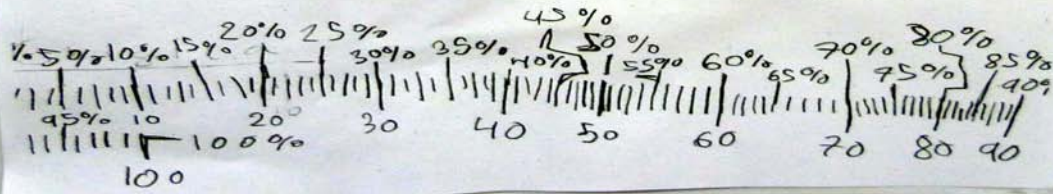 45%
% 5% 10% 15% 20% 25% 30% 35% 40% 50% 55% 60% 65% 70% 75% 80% 85% 90%
95% 10 20 30 40 50 60 70 80 90
100%
100